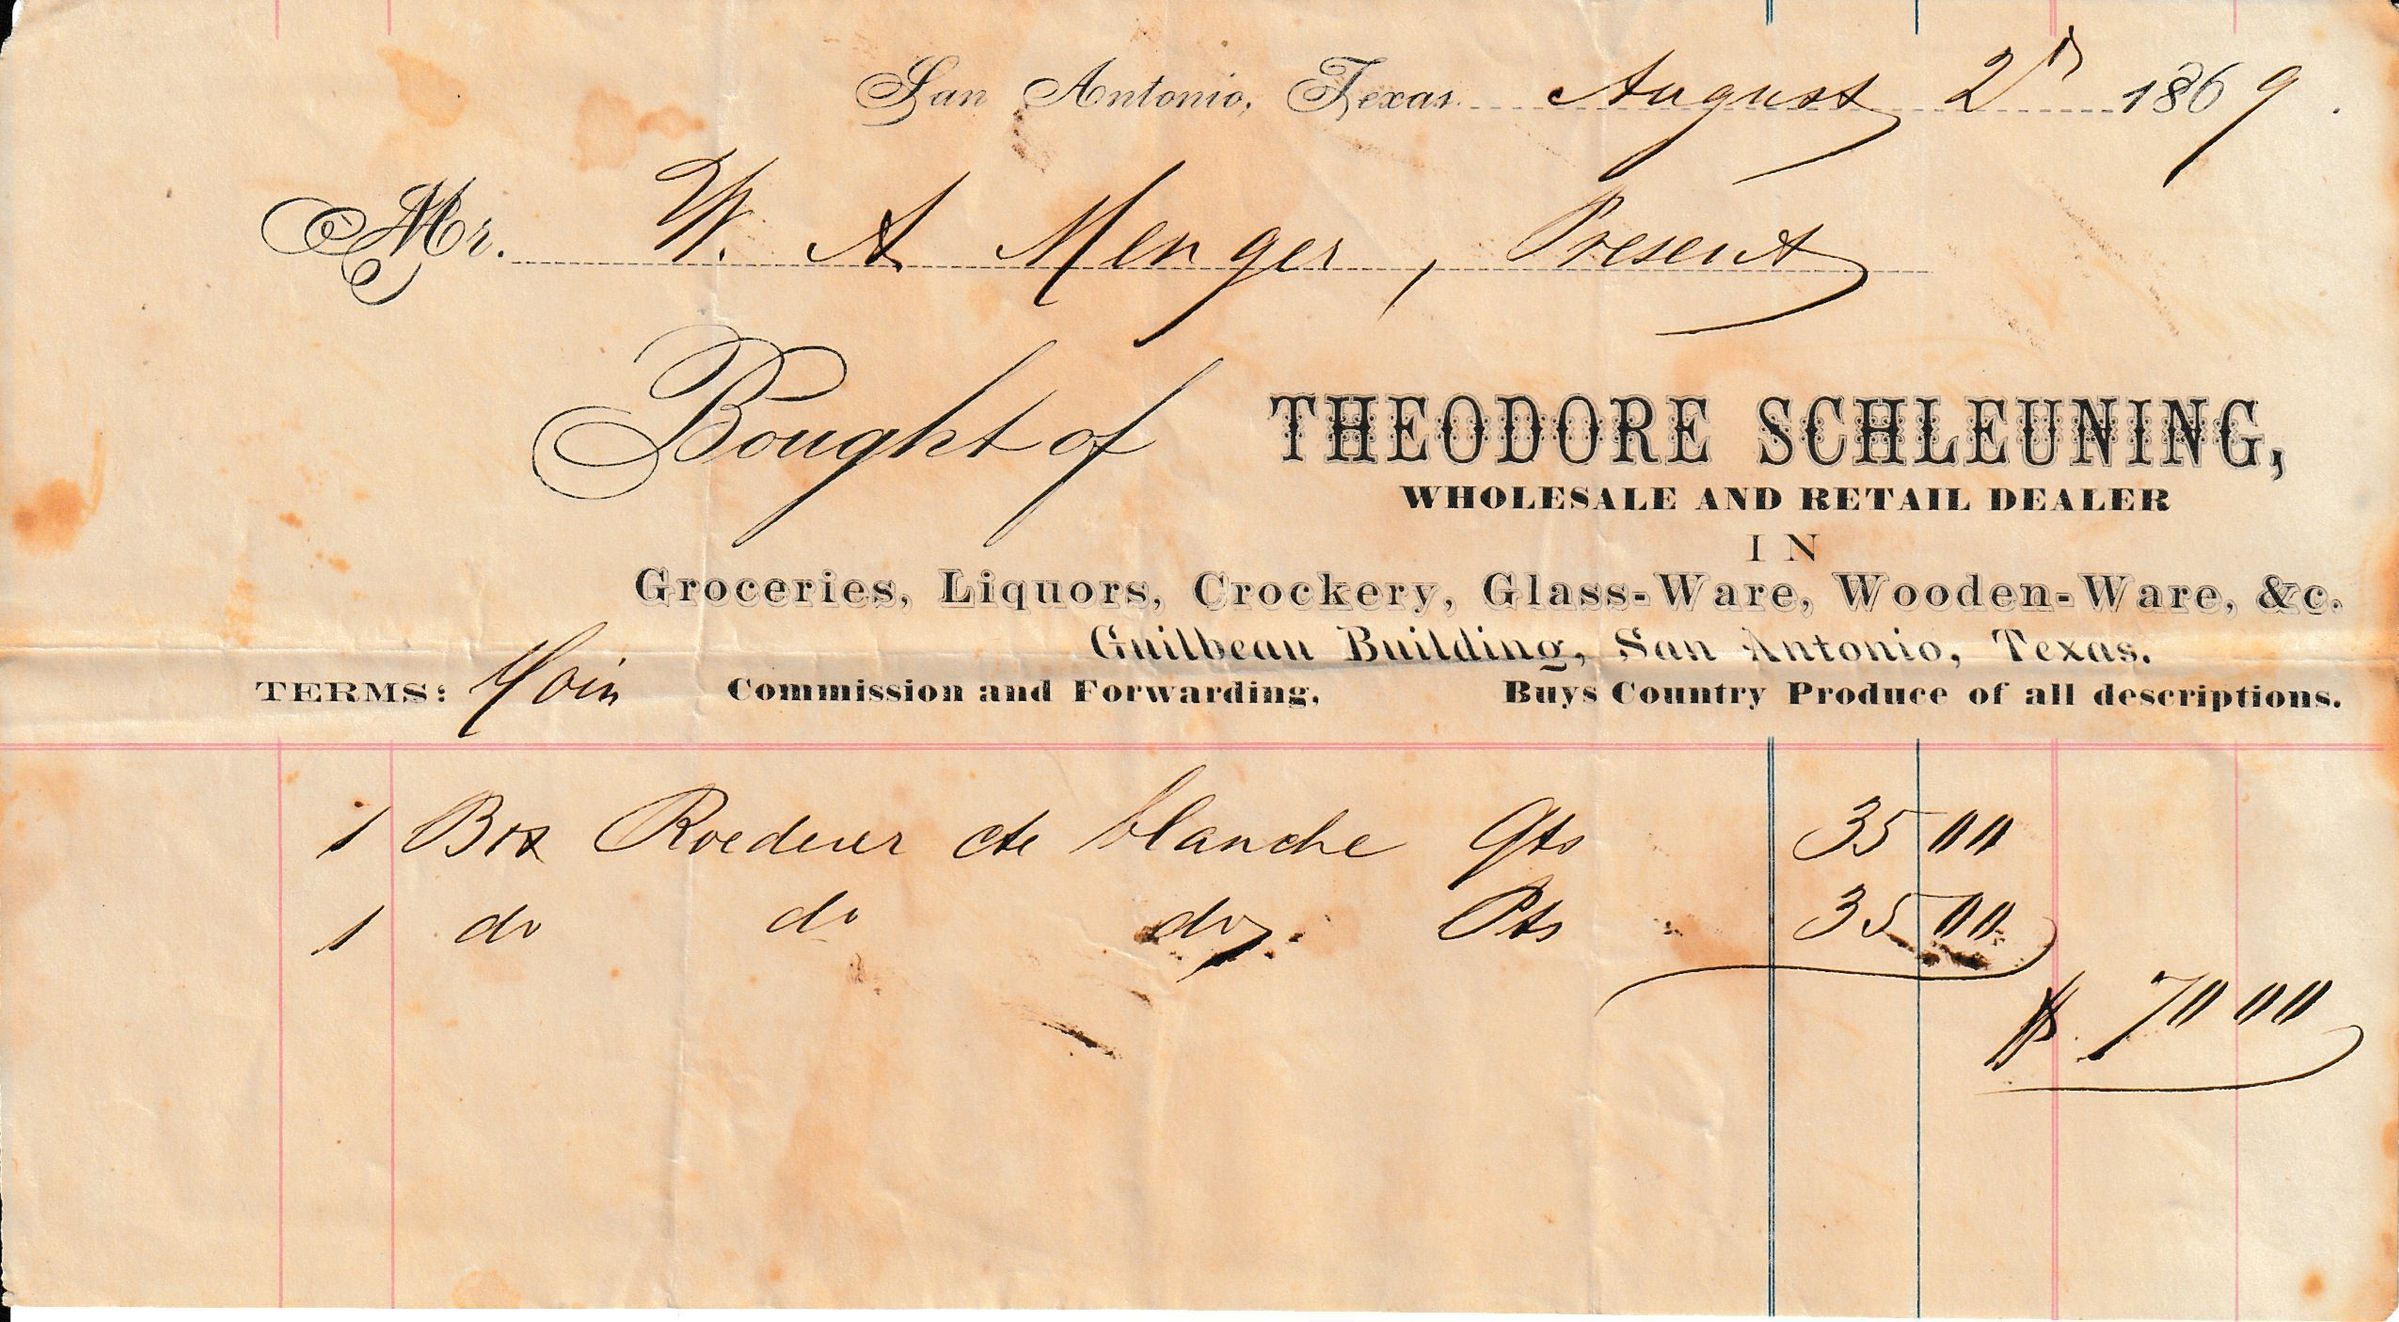 San Antonio, Texas. August 2d 1869.
Mr. W. A Menger, Present
Bought of THEODORE SCHLEUNING,
WHOLESALE AND RETAIL DEALER
IN
Groceries, Liquors, Crockery, Glass-Ware, Wooden-Ware, &c.
Guilbeau Building, San Antonio, Texas.
TERMS: Coin Commission and Forwarding. Buys Country Produce of all descriptions.
1 Bx Roederer cte blanche Qts 35 00
1 do do do. Pts 35 00
$ 70 00